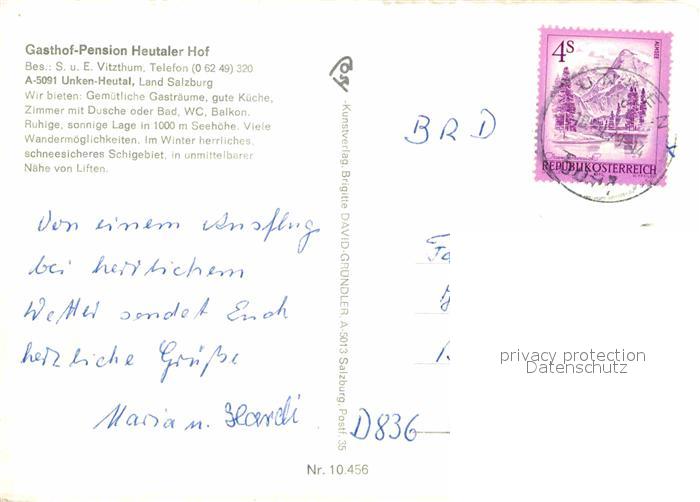 Gasthof-Pension Heutaler Hof
Bes.: S. u. E. Vitzthum, Telefon (0 62 49) 320
A-5091 Unken-Heutal, Land Salzburg
Wir bieten: Gemütliche Gasträume, gute Küche,
Zimmer mit Dusche oder Bad, WC, Balkon.
Ruhige, sonnige Lage in 1000 m Seehöhe. Viele
Wandermöglichkeiten. Im Winter herrliches,
schneesicheres Schigebiet, in unmittelbarer
Nähe von Liften.
Von einem Ausflug
bei herrlichem
Wetter sendet Euch
herzliche Grüße
Maria u. Hardi
Nr. 10.456
-Kunstverlag, Brigitte DAVID-GRÜNDLER, A-5013 Salzburg, Postf. 35
4S
ALMSEE
REPUBLIK ÖSTERREICH
BRD
Fa
D836
privacy protection
Datenschutz